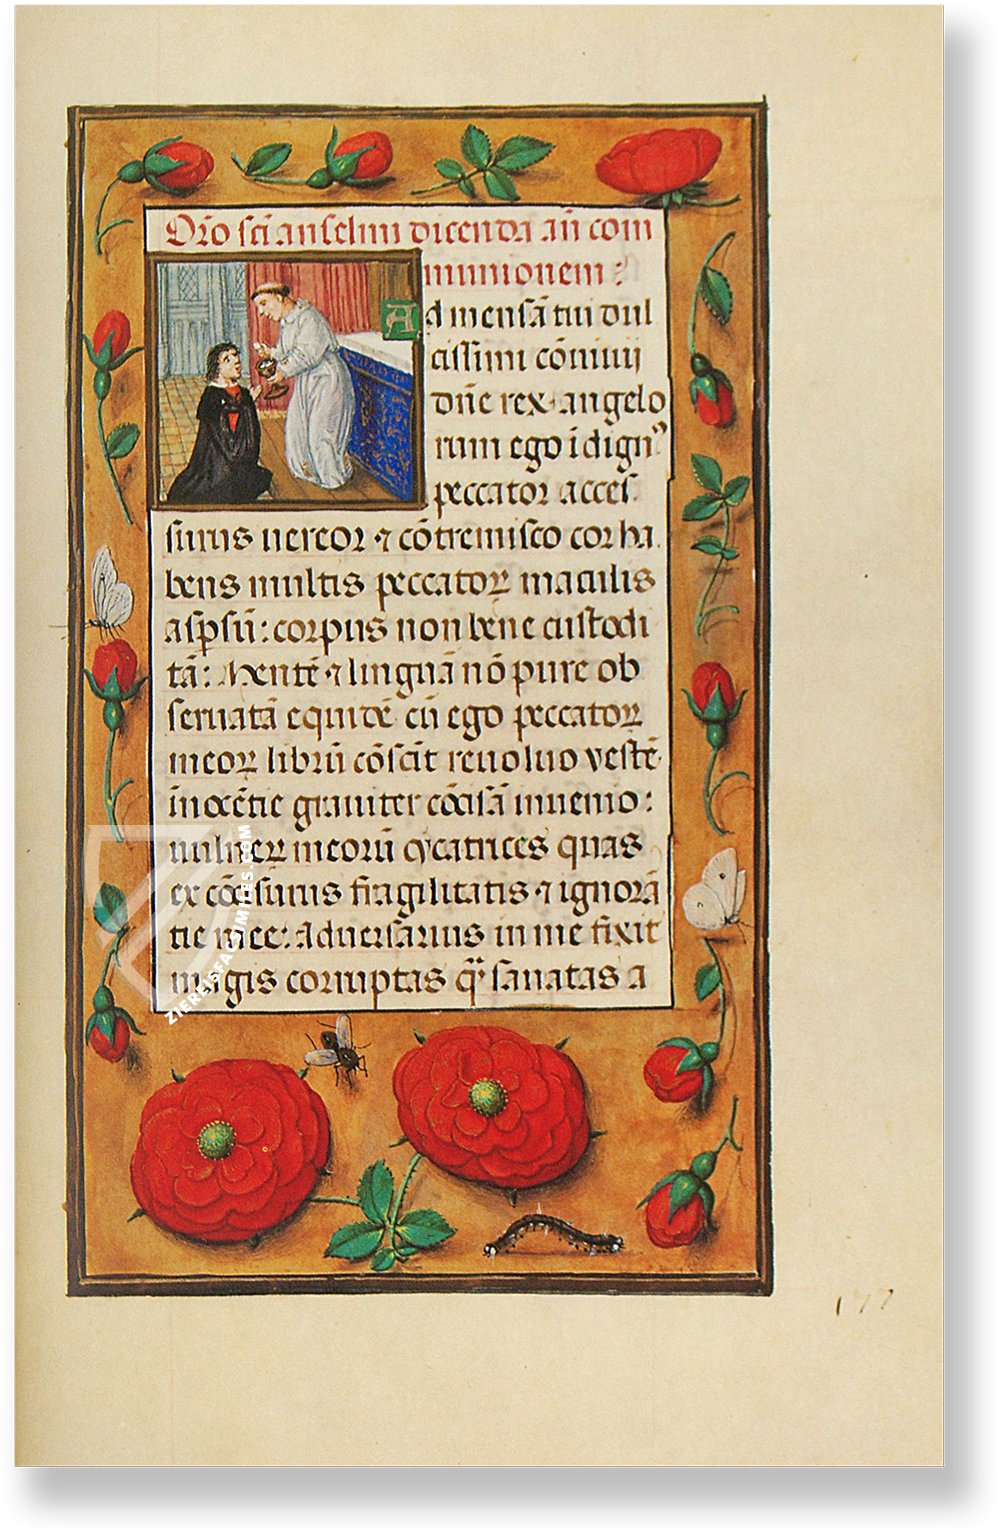 Orõ sci anselmi dicenda añ com
munionem :
Ad mensã tui dul
cissimi cõmiuij
dñe rex angelo
rum ego ĩdign⁹
peccator acces
surus uereor ⁊ cõtremisco cor ha
bens multis peccatoꝝ maculis
aspsũ : corpus non bene custodi
tã : Mentẽ ⁊ linguã nõ pure ob
seruatã equidẽ cũ ego peccatoꝝ
meoꝝ librũ cõsciẽ reuoluo vestẽ
ĩnocẽtie grauiter cõcisã inuenio :
uulneꝝ meorũ q̃ catrices quas
ex cõcessurus fragilitatis ⁊ ignorã
tie mee : aduersarius in me fixit
magis corruptas q̃ sanatas a
177
ZIEREISFACSIMILES.COM